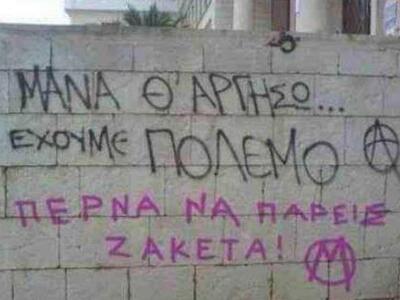 ΜΑΝΑ Θ' ΑΡΓΗΣΩ...
ΕΧΟΥΜΕ ΠΟΛΕΜΟ Ⓐ
ΠΕΡΝΑ ΝΑ ΠΑΡΕΙΣ
ΖΑΚΕΤΑ! Ⓜ